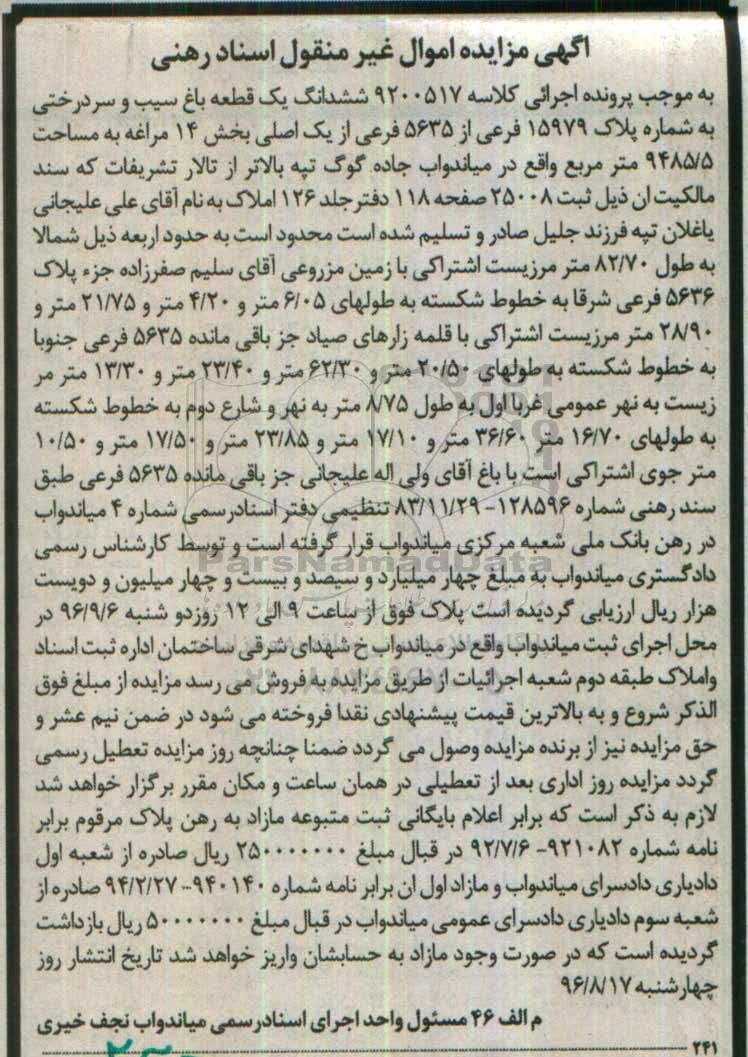 اگهی مزایده اموال غیر منقول اسناد رهنی
به موجب پرونده اجرائی کلاسه ۹۲۰۰۵۱۷ ششدانگ یک قطعه باغ سیب و سردرختی
به شماره پلاک ۱۵۹۷۹ فرعی از ۵۶۳۵ فرعی از یک اصلی بخش ۱۴ مراغه به مساحت
۹۴۸۵/۵ متر مربع واقع در میاندواب جاده گوگ تپه بالاتر از تالار تشریفات که سند
مالکیت ان ذیل ثبت ۲۵۰۰۸ صفحه ۱۱۸ دفتر جلد ۱۲۶ املاک به نام آقای علی علیجانی
یاغلان تپه فرزند جلیل صادر و تسلیم شده است محدود است به حدود اربعه ذیل شمالا
به طول ۸۲/۷۰ متر مرزیست اشتراکی با زمین مزروعی آقای سلیم صفرزاده جزء پلاک
۵۶۳۶ فرعی شرقا به خطوط شکسته به طولهای ۶/۰۵ متر و ۴/۲۰ متر و ۲۱/۷۵ متر و
۲۸/۹۰ متر مرزیست اشتراکی با قلمه زارهای صیاد جز باقی مانده ۵۶۳۵ فرعی جنوبا
به خطوط شکسته به طولهای ۲۰/۵۰ متر و ۶۲/۳۰ متر و ۲۳/۴۰ متر و ۱۳/۳۰ متر مر
زیست به نهر عمومی غربا اول به طول ۸/۷۵ متر به نهر و شارع دوم به خطوط شکسته
به طولهای ۱۶/۷۰ متر ۳۶/۶۰ متر و ۱۷/۱۰ متر و ۲۳/۸۵ متر و ۱۷/۵۰ متر و ۱۰/۵۰
متر جوی اشتراکی است با باغ آقای ولی اله علیجانی جز باقی مانده ۵۶۳۵ فرعی طبق
سند رهنی شماره ۱۲۸۵۹۶- ۸۳/۱۱/۲۹ تنظیمی دفتر اسنادرسمی شماره ۴ میاندواب
در رهن بانک ملی شعبه مرکزی میاندواب قرار گرفته است و توسط کارشناس رسمی
ParsNamadData
دادگستری میاندواب به مبلغ چهار میلیارد و سیصد و بیست و چهار میلیون و دویست
هزار ریال ارزیابی گردیده است پلاک فوق از ساعت ۹ الی ۱۲ روزدو شنبه ۹۶/۹/۶ در
محل اجرای ثبت میاندواب واقع در میاندواب خ شهدای شرقی ساختمان اداره ثبت اسناد
واملاک طبقه دوم شعبه اجرائیات از طریق مزایده به فروش می رسد مزایده از مبلغ فوق
الذکر شروع و به بالاترین قیمت پیشنهادی نقدا فروخته می شود در ضمن نیم عشر و
حق مزایده نیز از برنده مزایده وصول می گردد ضمنا چنانچه روز مزایده تعطیل رسمی
گردد مزایده روز اداری بعد از تعطیلی در همان ساعت و مکان مقرر برگزار خواهد شد
لازم به ذکر است که برابر اعلام بایگانی ثبت متبوعه مازاد به رهن پلاک مرقوم برابر
نامه شماره ۹۲۱۰۸۲- ۹۲/۷/۶ در قبال مبلغ ۲۵۰۰۰۰۰۰۰۰ ریال صادره از شعبه اول
دادیاری دادسرای میاندواب و مازاد اول ان برابر نامه شماره ۹۴۰۱۴۰-۹۴/۲/۲۷ صادره از
شعبه سوم دادیاری دادسرای عمومی میاندواب در قبال مبلغ ۵۰۰۰۰۰۰۰۰ ریال بازداشت
گردیده است که در صورت وجود مازاد به حسابشان واریز خواهد شد تاریخ انتشار روز
چهارشنبه ۹۶/۸/۱۷
م الف ۴۶ مسئول واحد اجرای اسنادرسمی میاندواب نجف خیری
۲۴۱